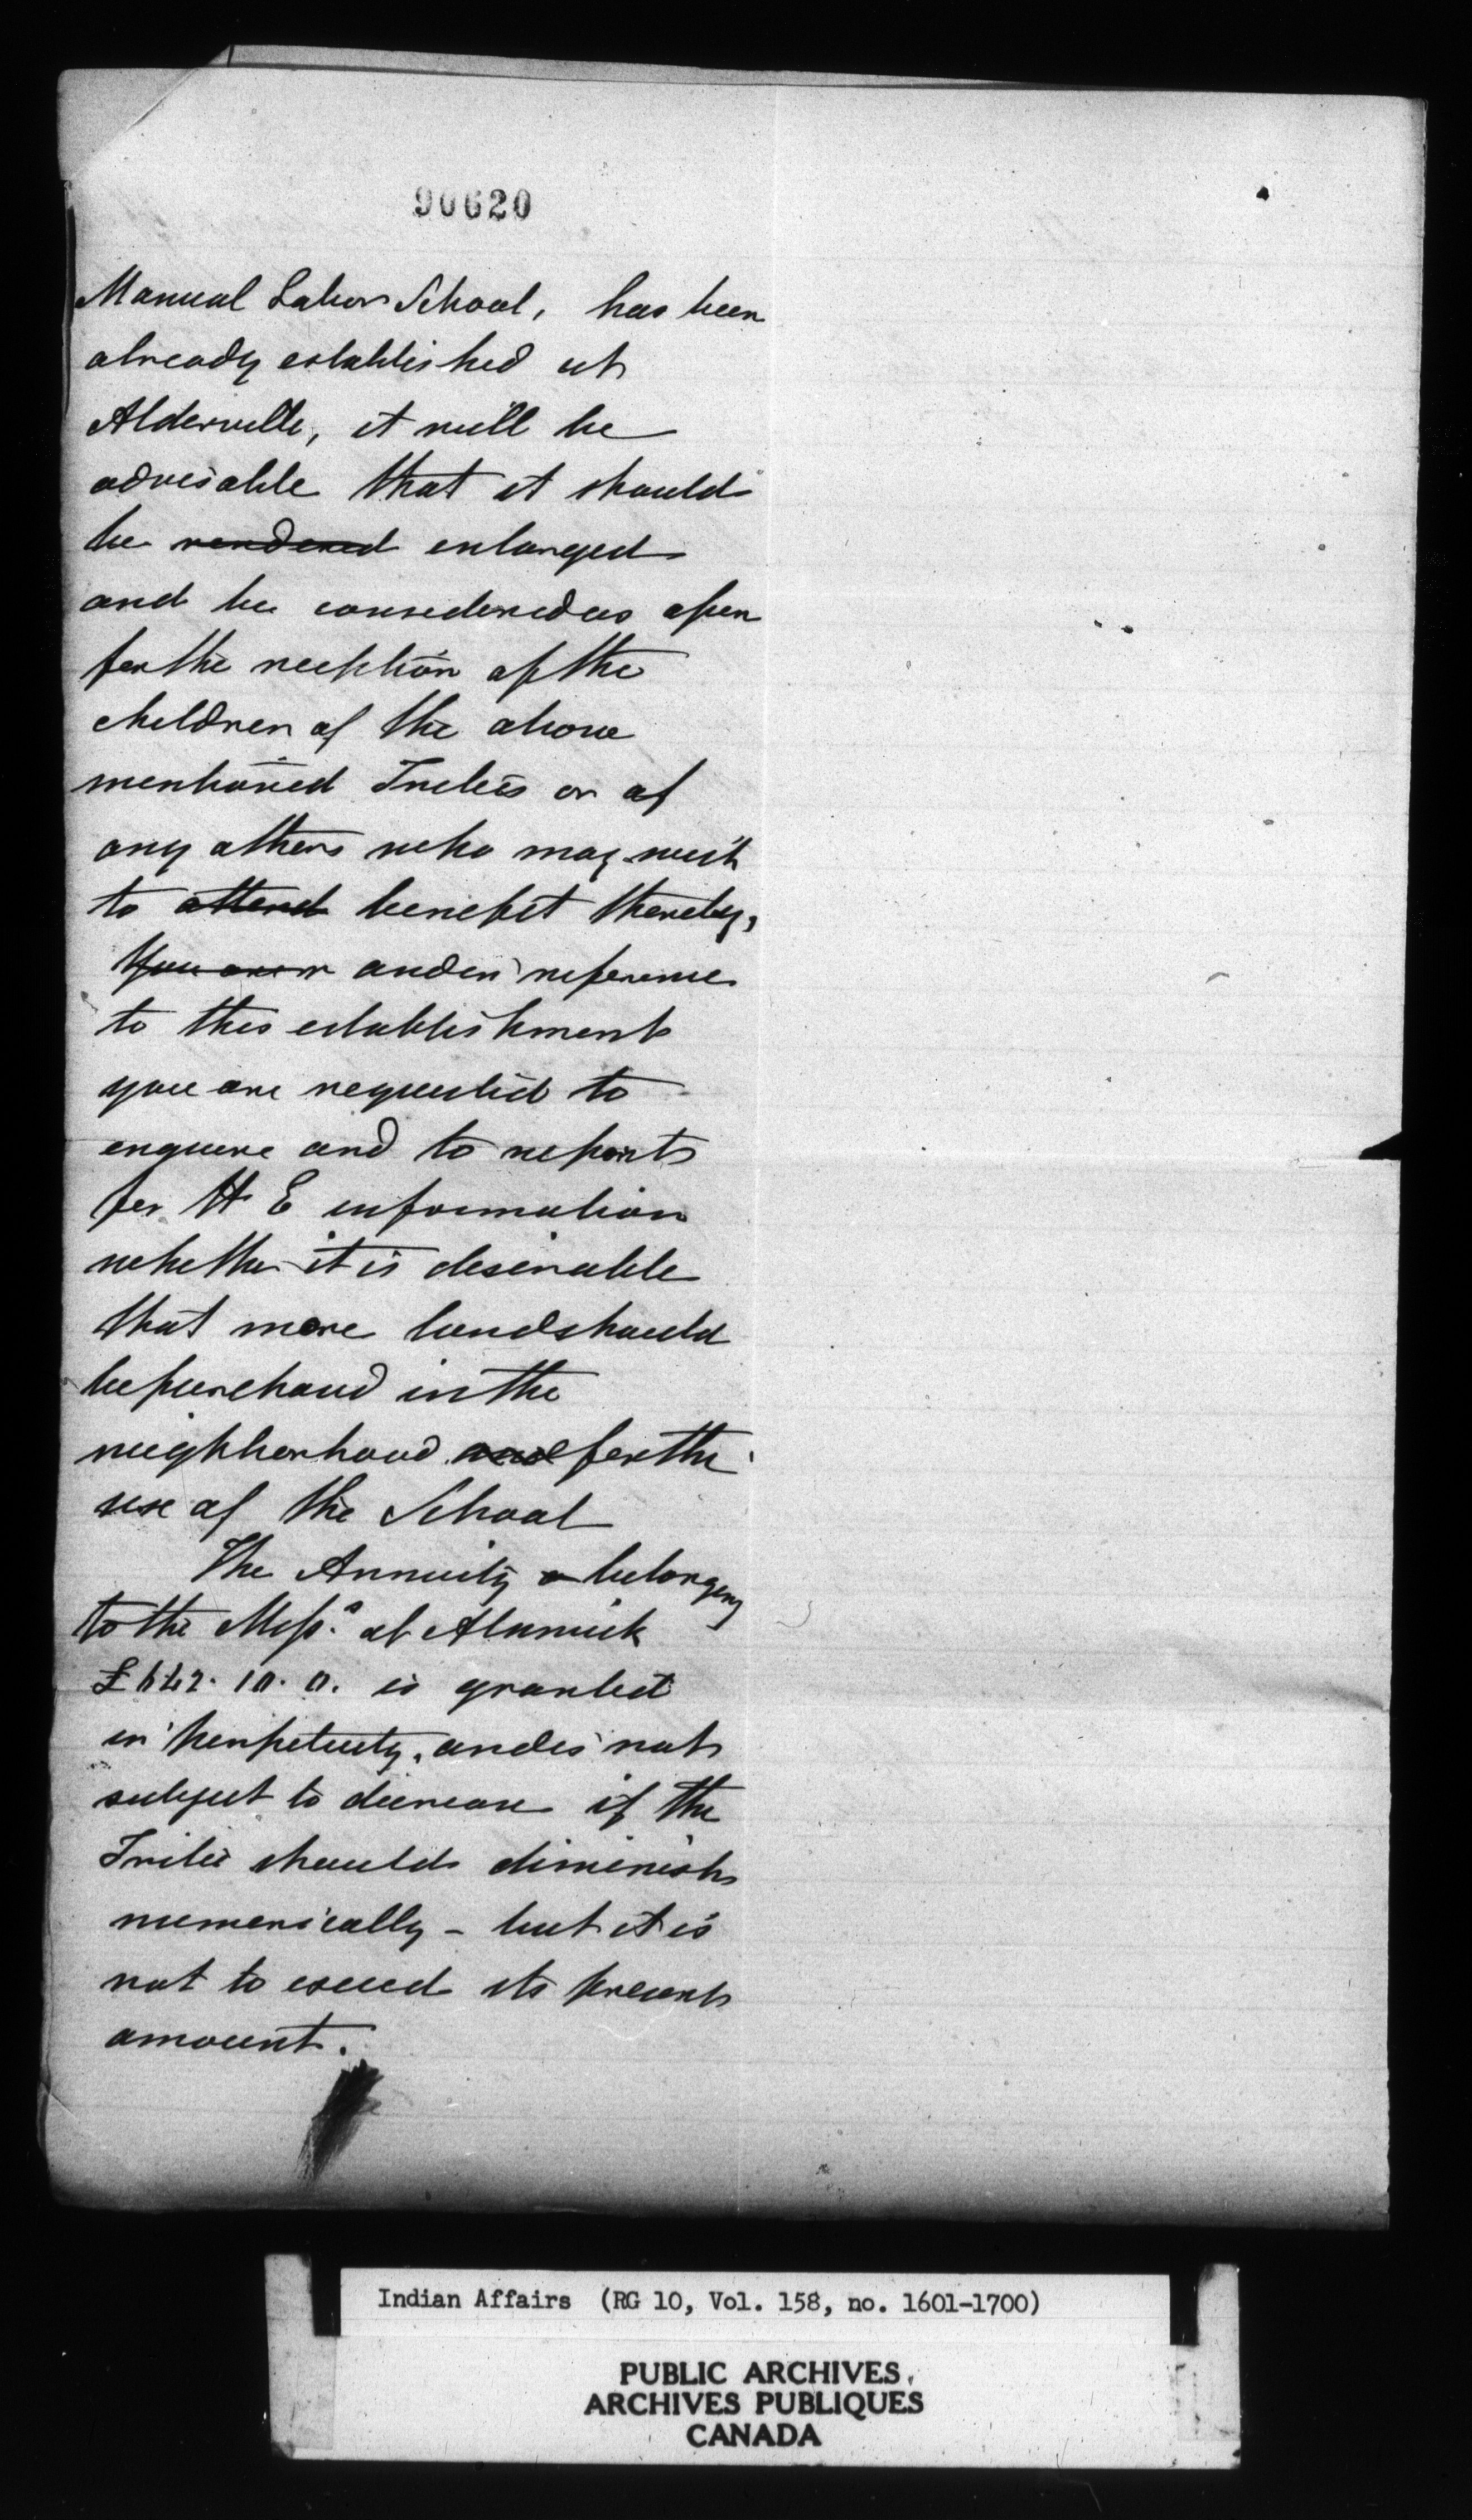 90620
Manual Labor School, has been
already established at
Alderville, it will be
advisable that it should
be rendered enlarged
and be considered as open
for the reception of the
children of the above
mentioned Tribes or of
any others who may wish
to attend benefit thereby,
You are in and in reference
to this establishment
you are requested to
enquire and to report
for H E information
whether it is desirable
that more land should
be purchased in the
neighborhood and for the
use of the School
The Annuity belonging
to the Miss.s at Alnwick
£642. 10. 0. is granted
in perpetuity, and is not
subject to decrease if the
Tribe should diminish
numerically - but it is
not to exceed its present
amount.
Indian Affairs (RG 10, Vol. 158, no. 1601-1700)
PUBLIC ARCHIVES
ARCHIVES PUBLIQUES
CANADA